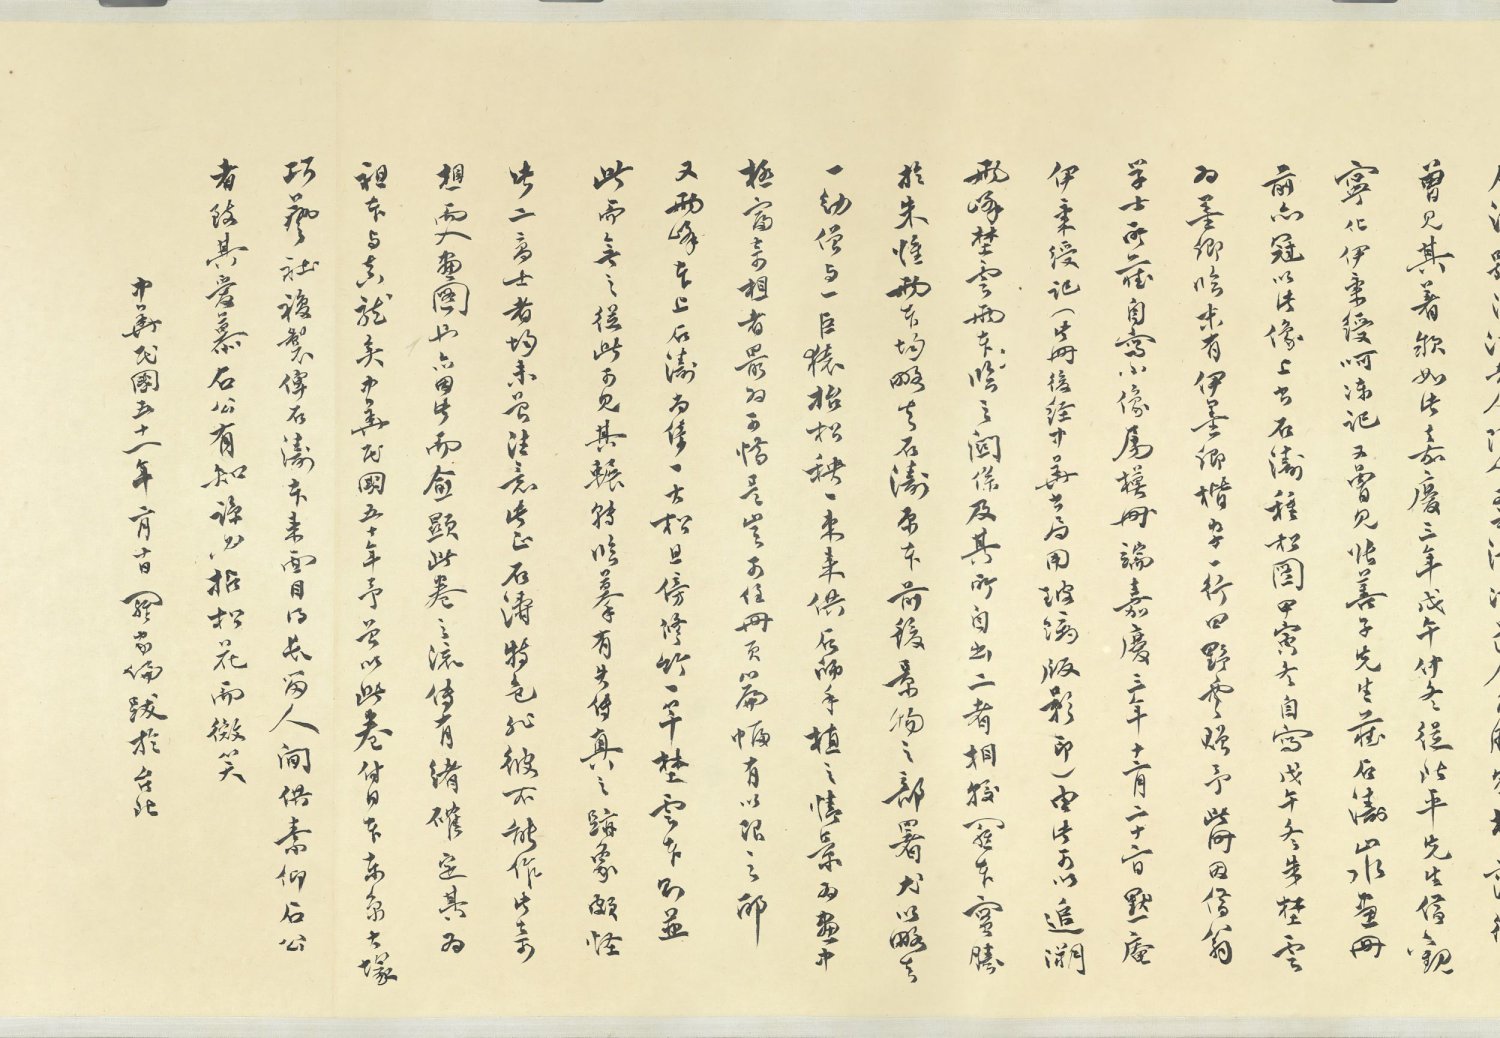 曾見其著錄如此嘉慶三年戊午仲冬從 平先生借觀
寧化伊秉綬呵凍記又曾見張善子先生藏石濤山水畫冊
前亦冠以此像上書石濤種松圖甲寅冬自寫戊午冬朱埜雲
為墨卿臨末有伊墨卿楷書一行曰野雲贈予此冊因借翁
學士所藏自寫小像屬模冊端嘉慶三年十二月二十六日默庵
伊秉綬記（此冊後經中華書局用玻瓈版影印）由此可以追溯
兩峰埜雲兩本臨之關係及其所自出二者相較羅本實勝
於朱惟兩本均略去石濤原本前後景物之部署尤以略去
一幼僧與一巨猿抬松秧一束來供石師手植之情景為畫中
極富奇趣者最為可惜是豈可任冊頁篇幅有以限之耶
又兩峰本上石濤為倚一古松且傍修竹一竿埜雲本則並
此而無之從此可見其轉轉臨摹有失傳真之蹟象頗怪
此二高士者均未曾注意此正石濤特色非彼不能作此奇
想而入畫圖也亦因此而愈顯此卷之流傳有緒確定其為
祖本與真龍矣中華民國五十年予曾以此卷付日本東京大塚
巧藝社複製俾石濤本來面目得長留人間供素仰石公
者致其愛慕石公有知諒必拈松花而微笑
中華民國五十一年二月十日羅家倫跋於台北